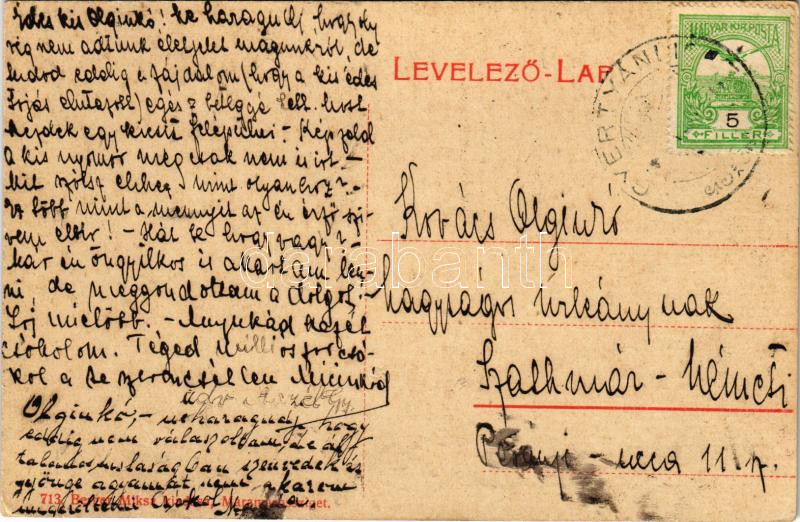 Édes kis Olginkó! Ne haragudj, hogy oly
rég nem adtunk életjelet magunkról, de
tudod eddig a fájdalom (hogy a kis édes
egész beteggé tett. Most
kezdek egy kicsit felépülni. - Képzeld
a kis nyomor még csak nem is írt -
Mit szólsz ehhez, mint olyanhoz? -
Ez több mint a mennyit az én érző szi-
vem eltűr! - Hát te hogy vagy? -
Már én öngyilkos is akartam len-
ni, de meggondoltam a dolgot. -
Írj mielőbb. - Anyukád kezét
csókolom. Téged milliószor csó-
kol a te szerencsétlen Micinkéd
Olginkó, - ne haragudj, hogy
eddig nem válaszoltam, de ál-
talános lustaságban szenvedek és
gyönge agyamat nem akarom
megerőltetni
LEVELEZŐ-LAP
MAGYAR KIR. POSTA
5
FILLER
Kovács Olginkó
nagyságos úrleánynak
Szathmár-Németi
Petőfi-ucca 11. sz.
darabanth
713. Berger Miksa kiadása, Máramarossziget.